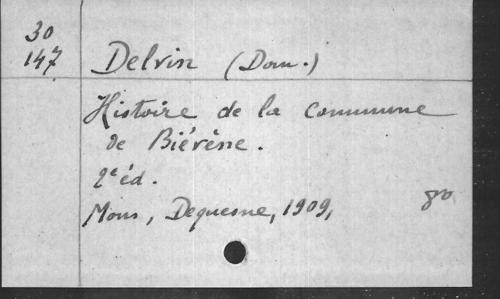 30
147
Delvin (Dom.)
Histoire de la Commune
de Biévène.
2e éd.
Mons, Dequesne, 1909,
8o